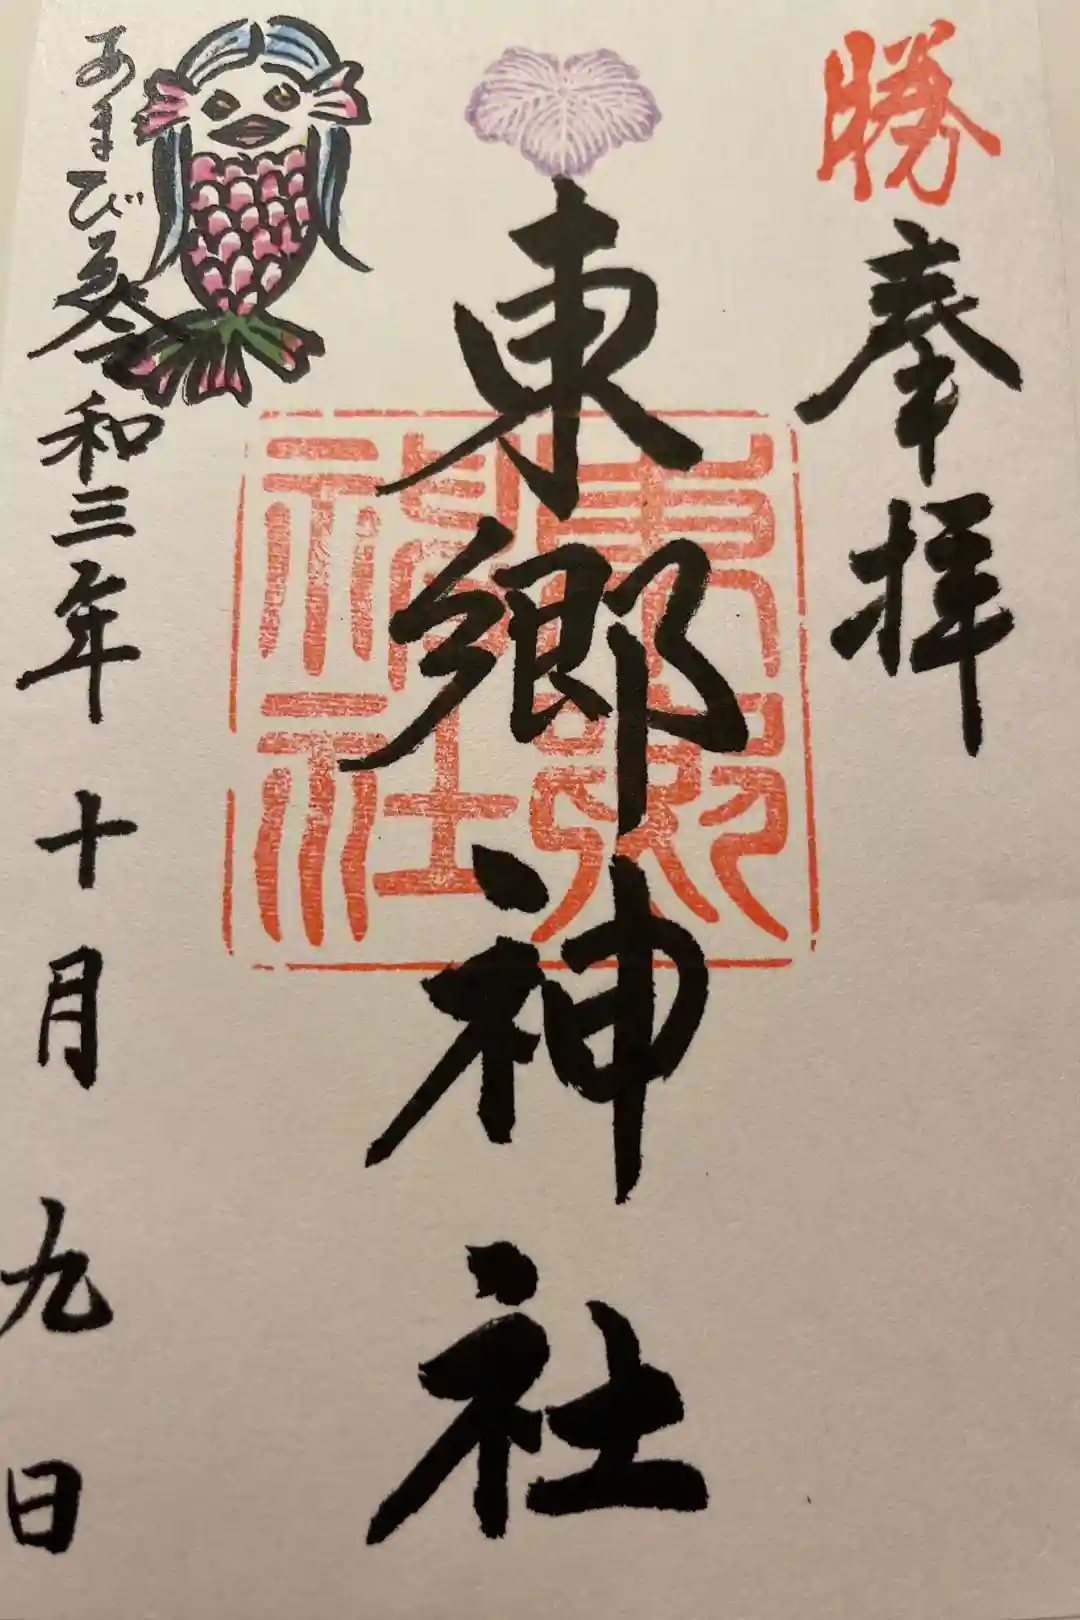 勝
奉拝
東郷神社
東郷
神社
あまびゑ
令和三年 十月 九日